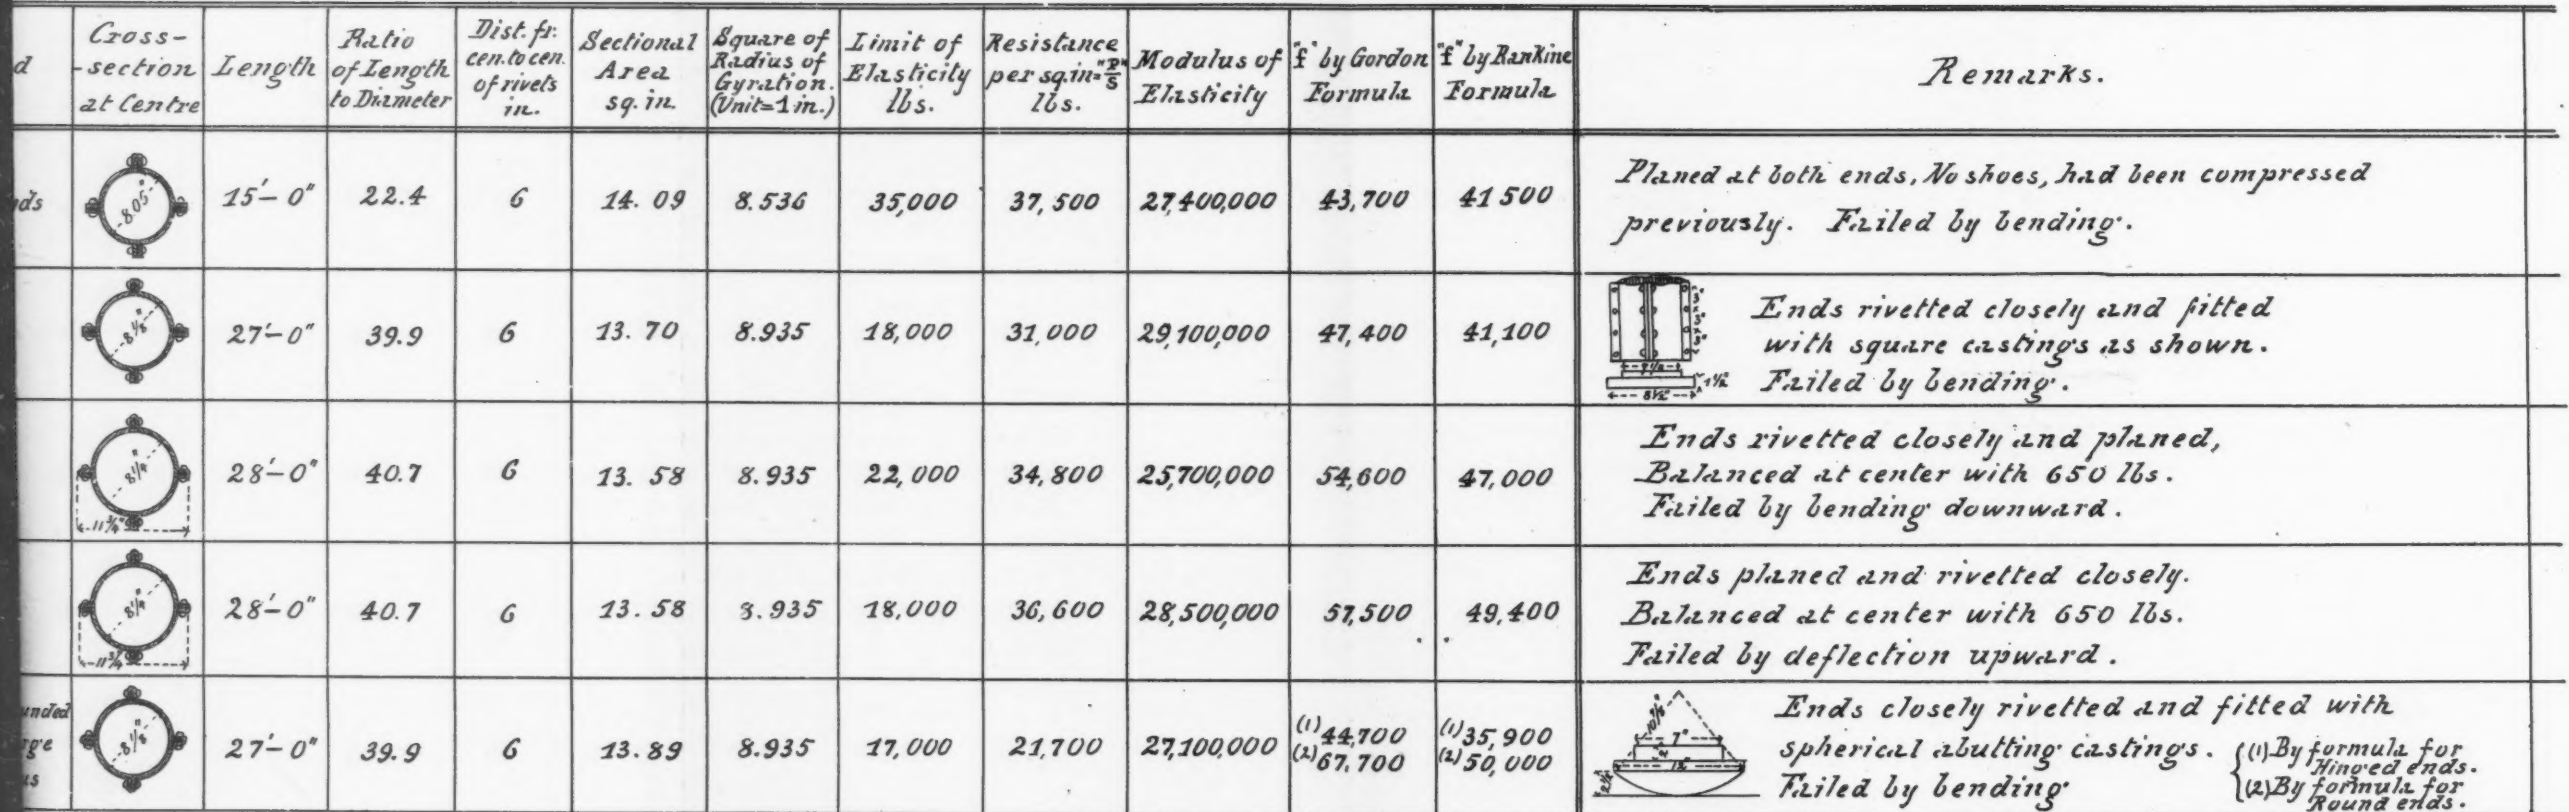 d
Cross-
-section
at Centre
Length
Ratio
of Length
to Diameter
Dist. fr.
cen. to cen.
of rivets
in.
Sectional
Area
sq. in.
Square of
Radius of
Gyration.
(Unit=1 in.)
Limit of
Elasticity
lbs.
Resistance
per sq.in= "P"/S
lbs.
Modulus of
Elasticity
"f" by Gordon
Formula
"f" by Rankine
Formula
Remarks.
nds
8.05"
15'-0"
22.4
6
14.09
8.536
35,000
37,500
27,400,000
43,700
41 500
Planed at both ends, No shoes, had been compressed
previously. Failed by bending.
8 1/8"
27'-0"
39.9
6
13.70
8.935
18,000
31,000
29,100,000
47,400
41,100
3"
3"
3"
1 1/2"
8 1/2"
Ends rivetted closely and fitted
with square castings as shown.
Failed by bending.
8 1/4"
11 3/4"
28'-0"
40.7
6
13.58
8.935
22,000
34,800
25,700,000
54,600
47,000
Ends rivetted closely and planed,
Balanced at center with 650 lbs.
Failed by bending downward.
8 1/4"
11 3/4"
28'-0"
40.7
6
13.58
8.935
18,000
36,600
28,500,000
57,500
49,400
Ends planed and rivetted closely.
Balanced at center with 650 lbs.
Failed by deflection upward.
unded
rge
us
8 1/8"
27'-0"
39.9
6
13.89
8.935
17,000
21,700
27,100,000
(1) 44,700
(2) 67,700
(1) 35,900
(2) 50,000
7"
Ends closely rivetted and fitted with
spherical abutting castings.
Failed by bending
(1) By formula for
Hinged ends.
(2) By formula for
Round ends.